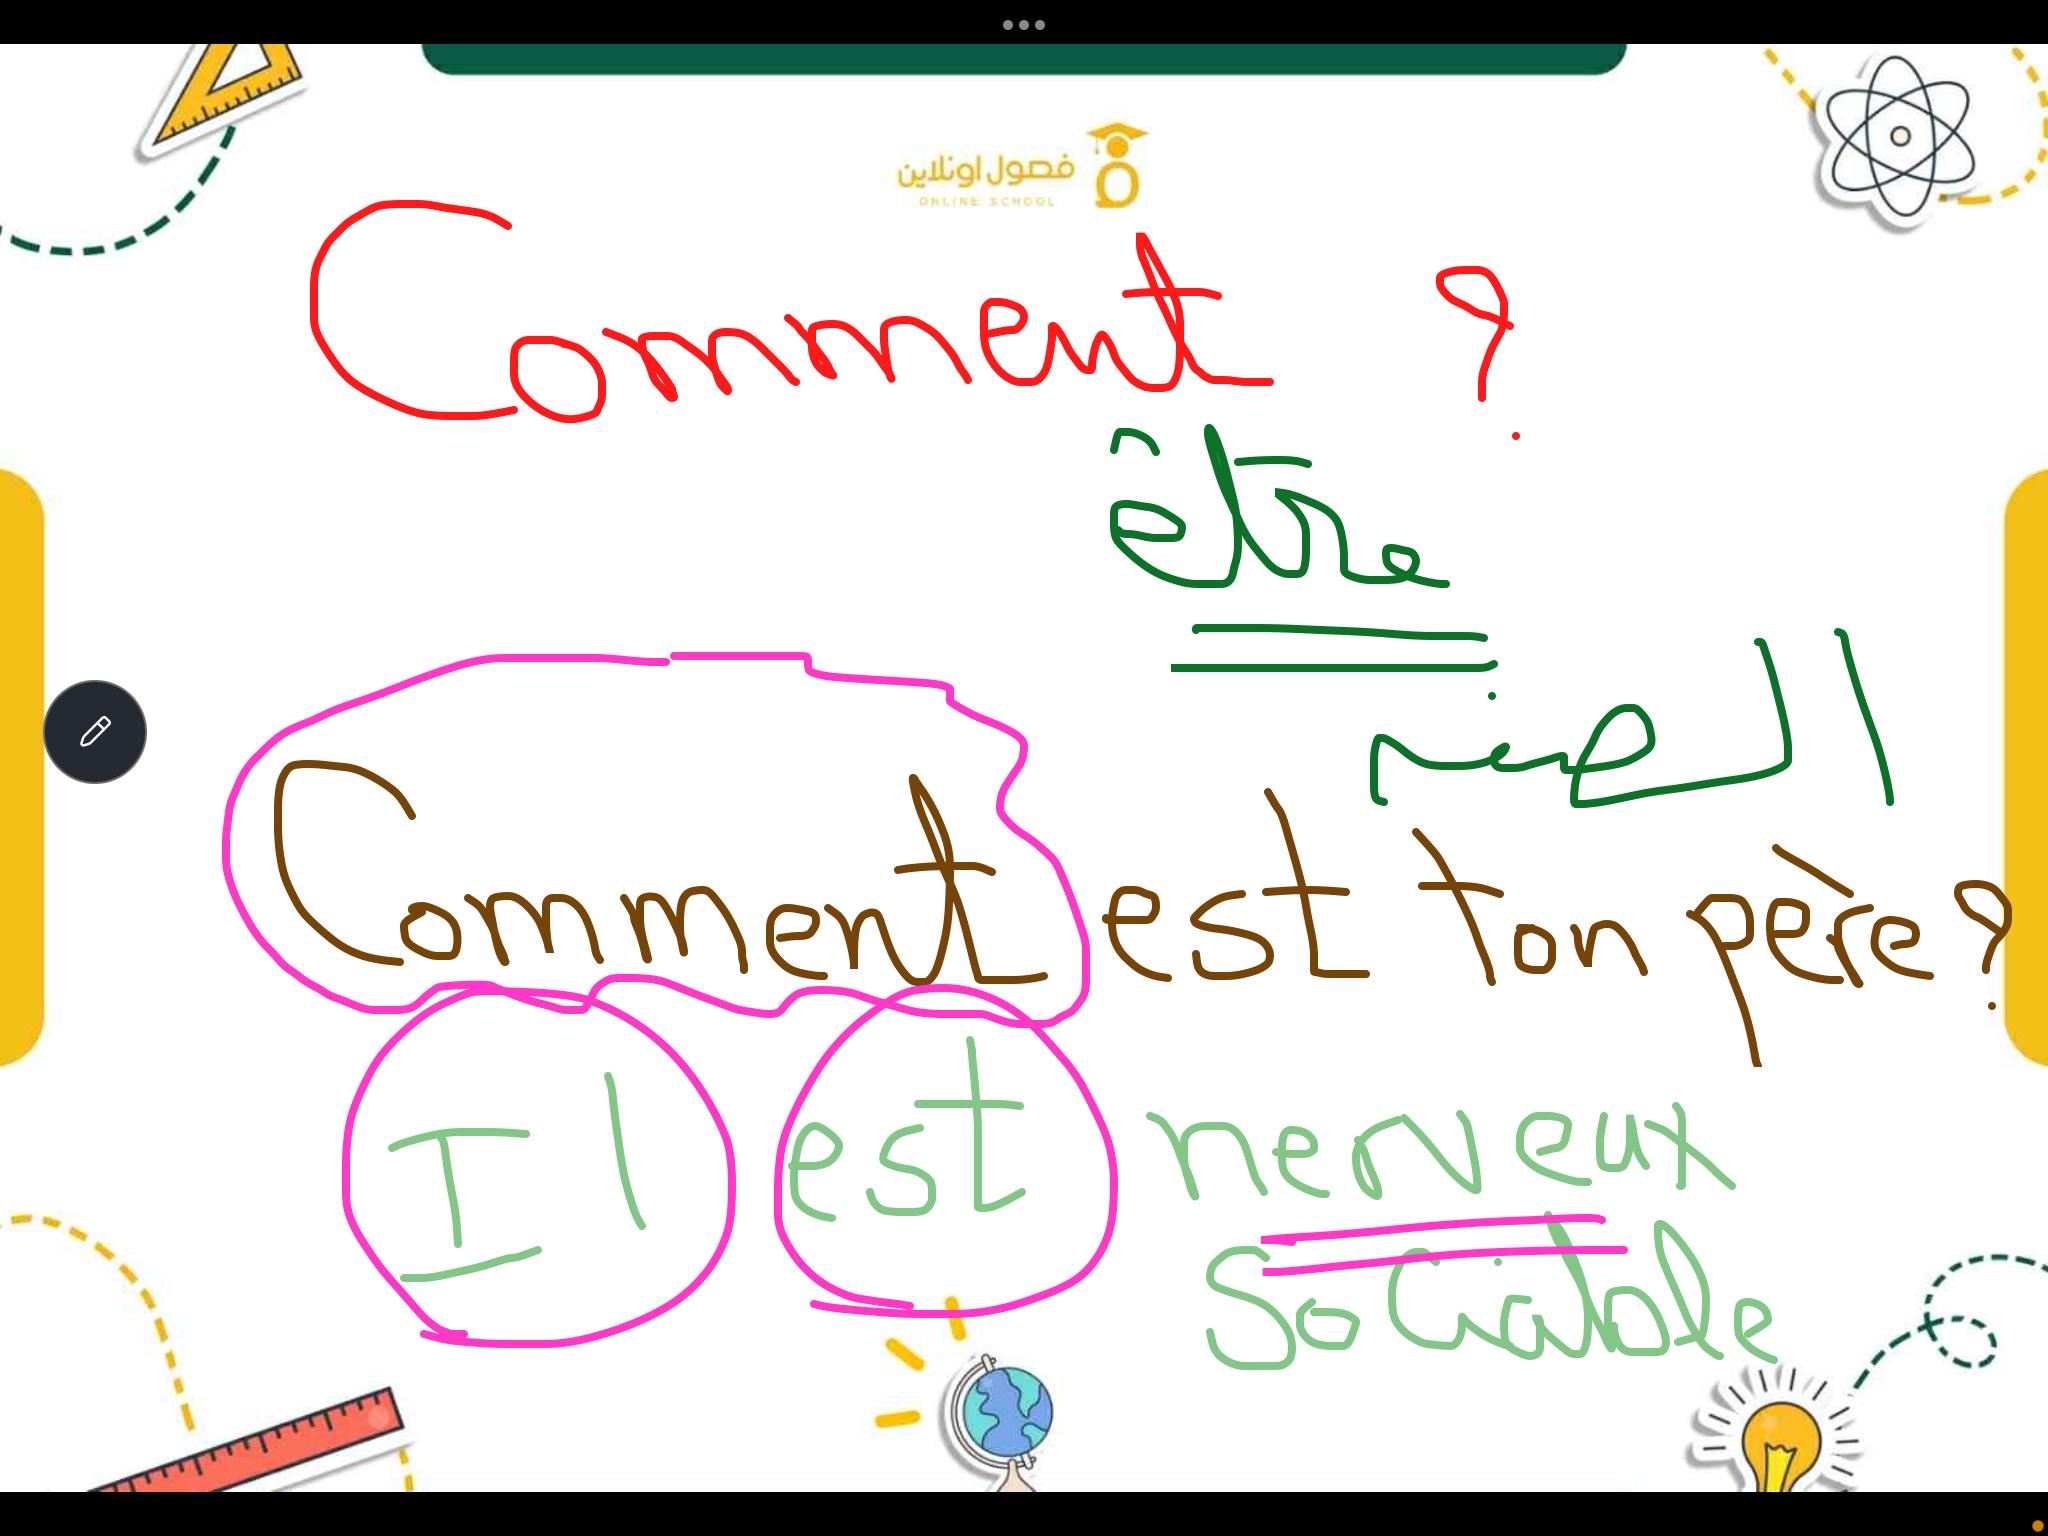 فصول اونلاين
ONLINE SCHOOL
Comment ?
être
Comment est ton père ?
Il est nerveux
sociable